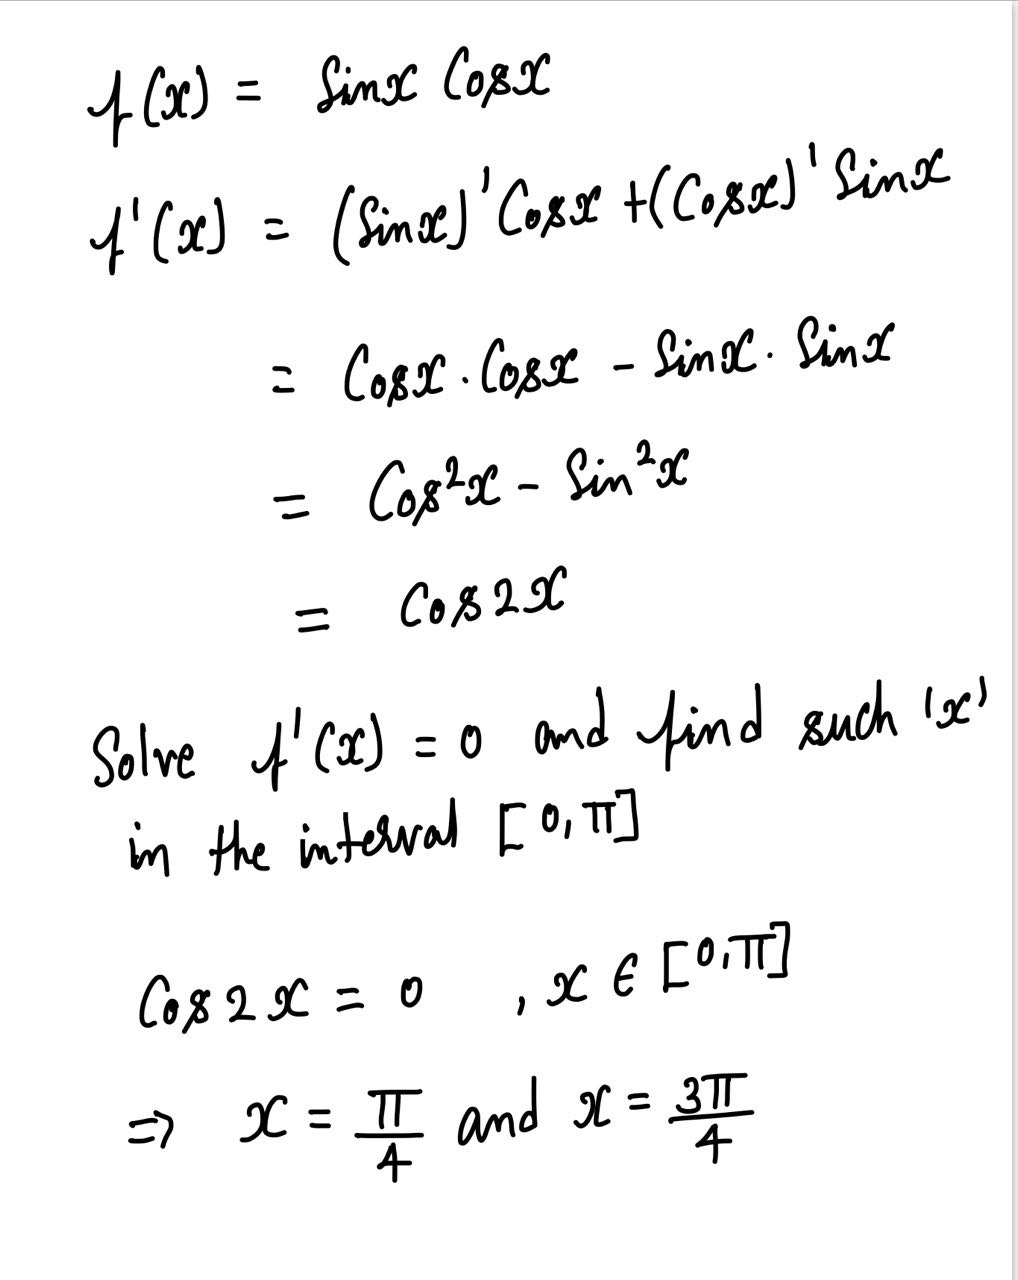 f(x) = Sinx Cosx
f'(x) = (Sinx)' Cosx + (Cosx)' Sinx
= Cosx . Cosx - Sinx . Sinx
= Cos²x - Sin²x
= Cos 2x
Solve f'(x) = 0 and find such 'x'
in the interval [0, π]
Cos 2x = 0 , x ∈ [0, π]
⇒ x = π/4 and x = 3π/4